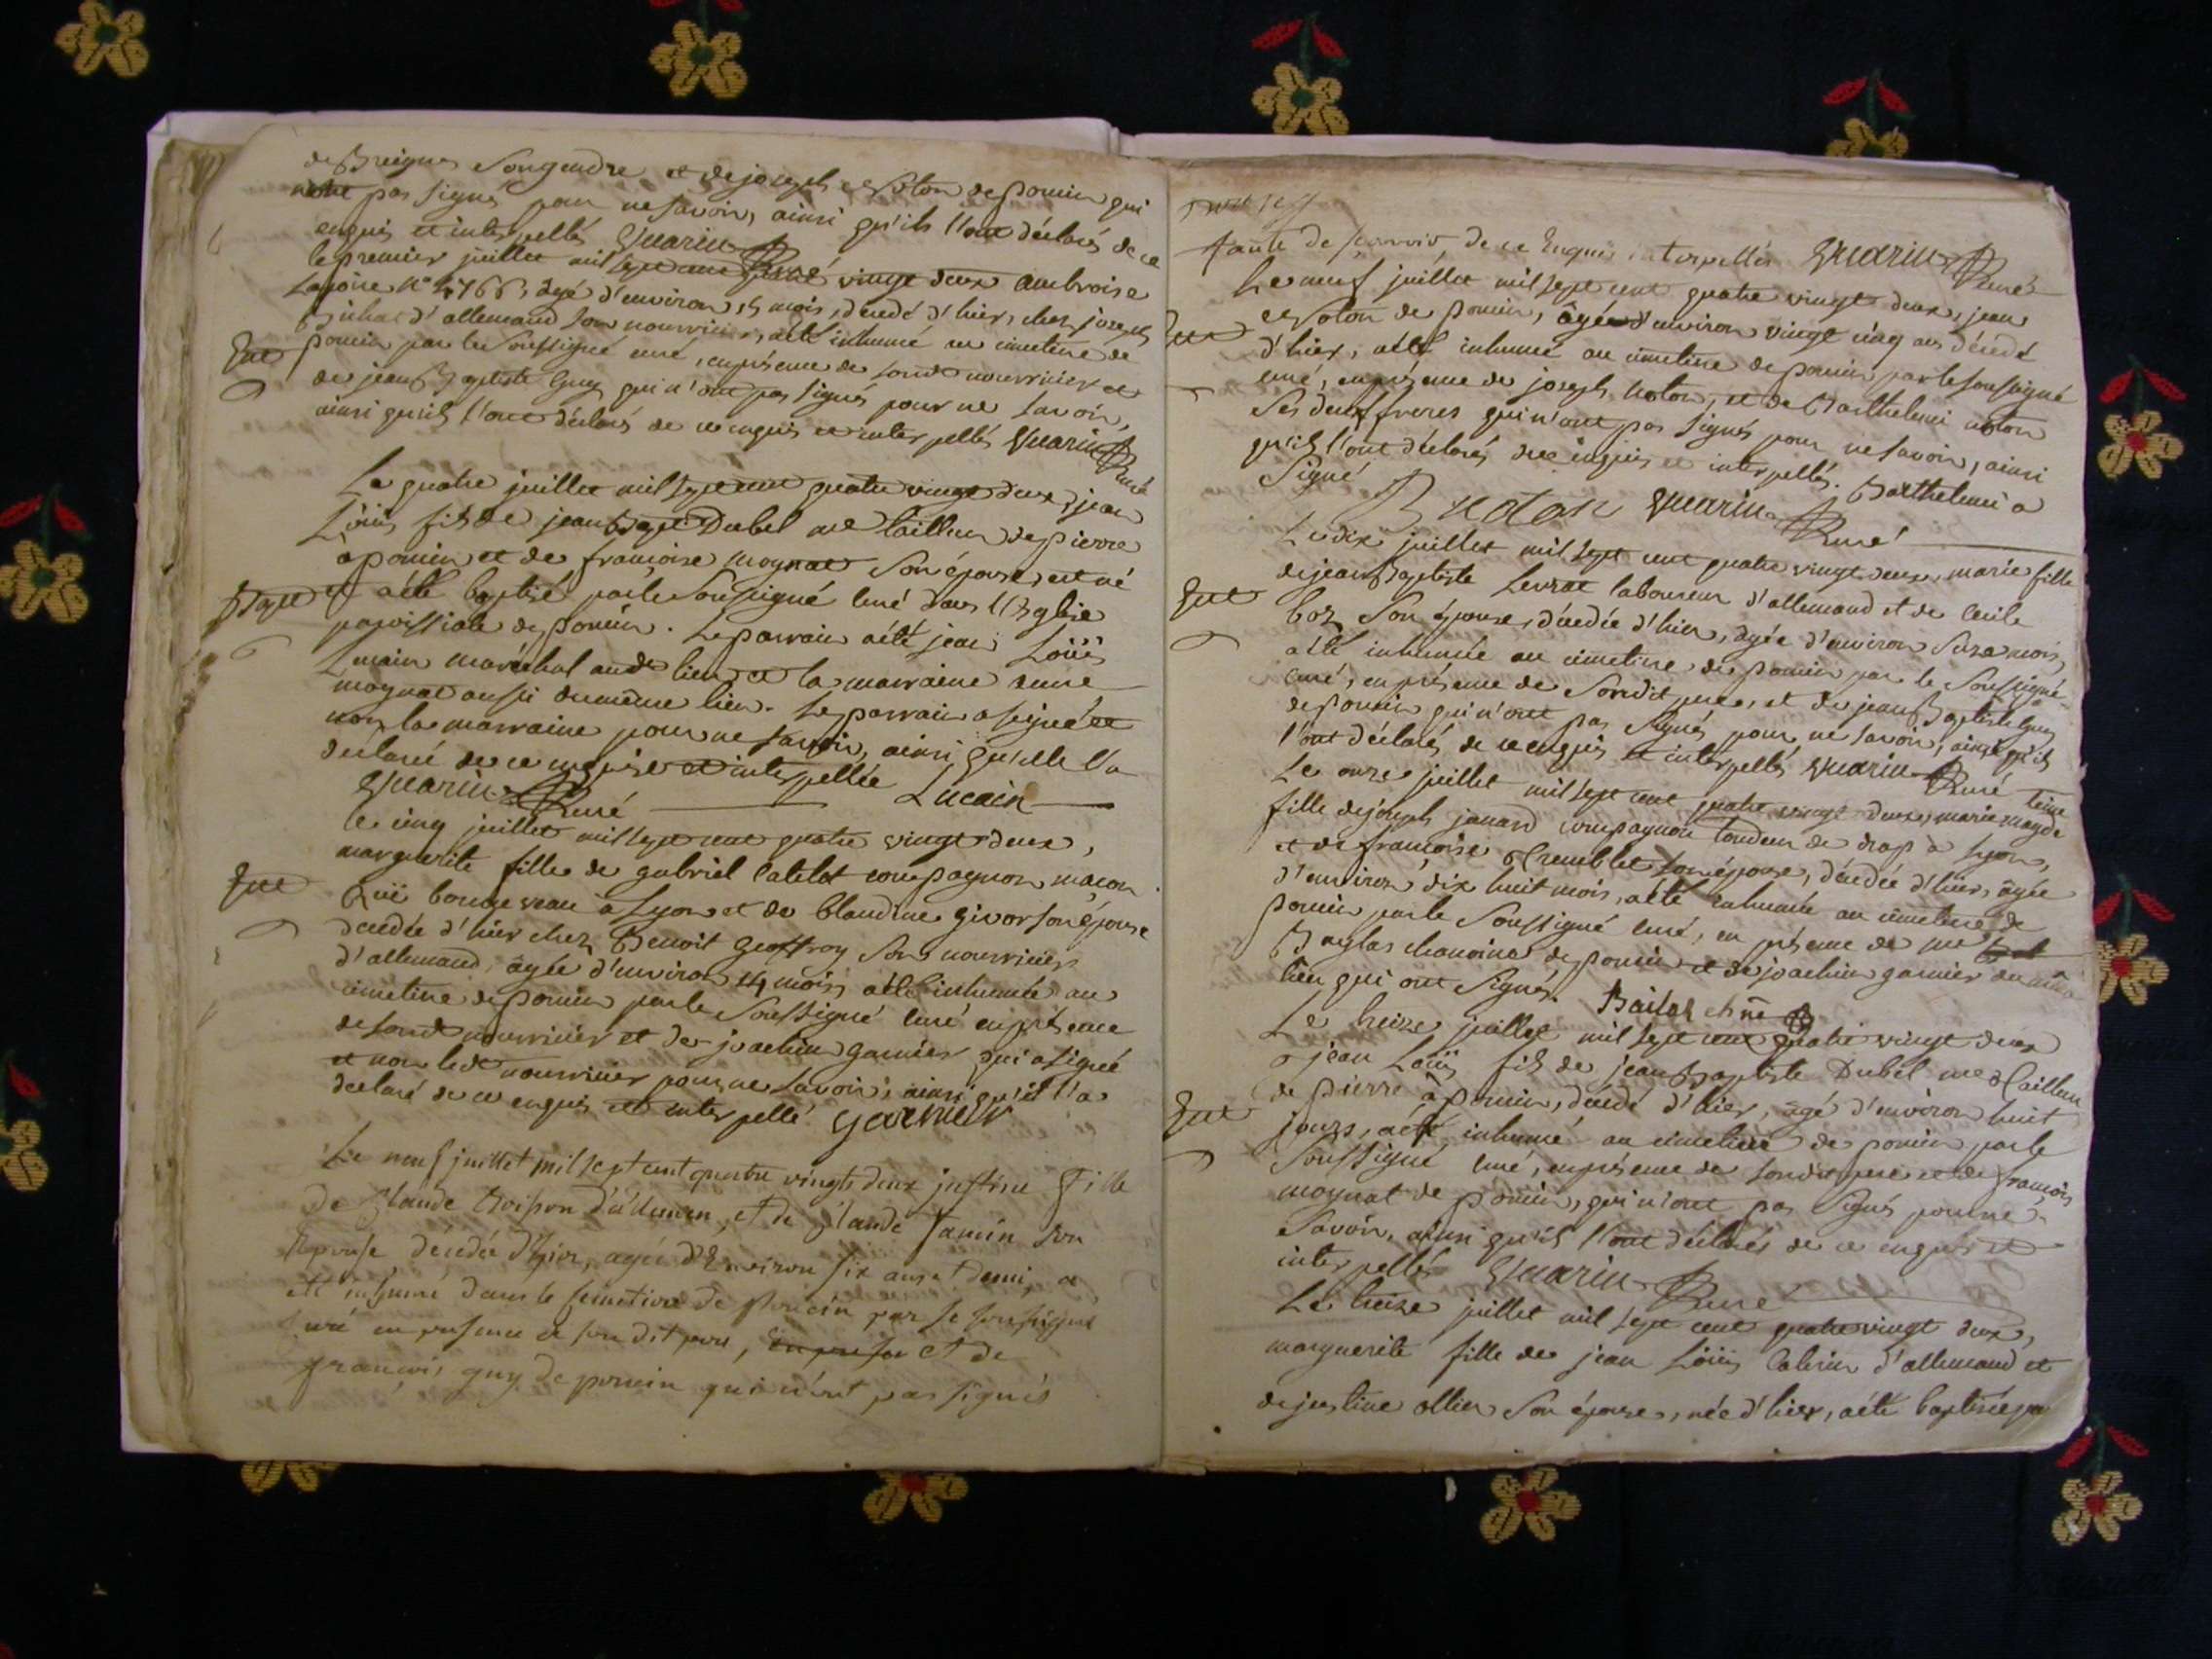 de Breignes Son gendre et de joseph Noton de poncin qui
n'ont pas signés pour ne savoir, ainsi qu'ils l'ont déclarés de ce
enquis et interpellés Guarin Curé
le premier juillet mil sept cent vingt deux ambroise
Lajoïe N° 4766, âgé d'environ mois, décedé d'hier, chez joseph
d'allemand son nourricier, a été inhumé au cimetiere de
Ent poncin par le Soussigné curé, en présence de sondt nourricier et
de jean Baptiste Guy qui n'ont pas signés pour ne savoir,
ainsi qu'ils l'ont déclarés de ce enquis et interpellés Guarin Curé
Le quatre juillet mil sept cent quatre vingt deux, jean
Loüis fils de jean Bapt Dubel me tailleur de pierre
à poncin et de françoise moynat Son épouse, est né
Bapt et a été baptisé par le Soussigné Curé dans l'Eglise
paroissiale de poncin. Le parrain a été jean Loüis
Lucain maréchal audt lieu et la marraine
moynat aussi du même lieu. Le parrain a signé et
non la marraine pour ne savoir, ainsi qu'elle l'a
déclaré de ce enquise et interpellée Lucain
Guarin Curé
le cinq juillet mil sept cent quatre vingt deux,
marguerite fille de gabriel Catelot compagnon maçon
Ent à Lyon et de Claudine givor son épouse
decedée d'hier chez Benoit Geoffroy Son nourricier
d'allemand, âgée d'environ 14 mois, a été inhumée au
cimetiere de poncin par le Soussigné curé en présence
de sondt nourricier et de joachim garnier qui a signé
et non ledt nourricier pour ne savoir, ainsi qu'il l'a
déclaré de ce enquis et interpellé garnier
Le neuf juillet mil sept cent quatre vingts deux justine fille
de Claude et de Claude jamin son
Epouse, décedée d'hier, agée d'Environ six ans et demi, a
été inhumé dans le simetiere de poncin par le soussigné
Curé en presence de son dit pere, en presen et de
françois guy de poncin qui n'ont pas signés
faute de sçavoir, de ce Enquis interpellés Guarin Curé
Le neuf juillet mil sept cent quatre vingt deux, jean
Ent Noton de poncin, âgé d'environ vingt cinq ans décedé
d'hier, a été inhumé au cimetiere de poncin par le soussigné
curé, en présence de joseph noton, et de Barthelemi noton
Ses deux freres qui n'ont pas signés pour ne savoir, ainsi
qu'ils l'ont déclarés de ce enquis et interpellés. Barthelemi a
Signé B noton Guarin Curé
Le dix juillet mil sept cent quatre vingt deux, marie fille
de jean Baptiste Levrat laboureur d'allemand et de Cecile
Ent boz Son épouse, décedée d'hier, agée d'environ mois,
a été inhumée au cimetiere de poncin par le Soussigné
curé, en présence de Sondit pere, et de jean Baptiste Guy
de poncin qui n'ont pas signés pour ne savoir, ainsi qu'ils
l'ont déclarés de ce enquis et interpellés Guarin Curé
Le onze juillet mil sept cent quatre vingt deux, marie magdeleine
fille de joseph janard compagnon tondeur de drap à Lyon,
et de françoise Tremblet son épouse, décedée d'hier, âgée
d'environ dix huit mois, a été inhumée au cimetiere de
poncin par le Soussigné curé, en présence de me
Baylas chanoine de poncin et de joachim garnier du même
lieu qui ont Signés. Bailas chne
Le treize juillet mil sept cent quatre vingt deux
jean Loüis fils de jean Baptiste Dubel me Tailleur
de pierre à poncin, décedé d'hier, agé d'environ huit
Ent jours, a été inhumé au cimetiere de poncin par le
Soussigné curé, en présence de sondit pere et de françois
moynat de poncin, qui n'ont pas Signés pour ne
Savoir, ainsi qu'ils l'ont déclarés de ce enquis et
interpellés Guarin Curé
Le treize juillet mil sept cent quatre vingt deux,
marguerite fille de jean Loüis Caterin d'allemand et
de justine ollier Son épouse, née d'hier, a été baptisée par